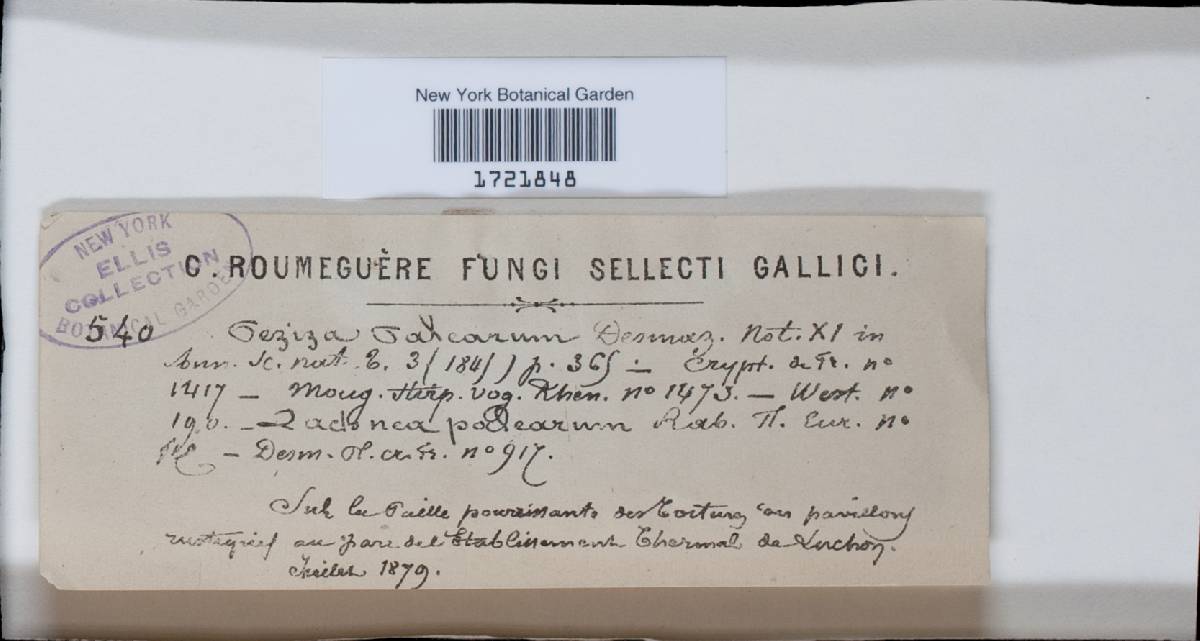 New York Botanical Garden
1721848
NEW YORK
ELLIS
COLLECTION
BOTANICAL GARDEN
C. ROUMEGUÈRE FUNGI SELLECTI GALLICI.
540 Peziza Palearum Desmaz. Not. XI in
Ann. Sc. nat. t. 3 (1845) p. 365 — Crypt. de Fr. no
1417 — Moug. Stirp. vog. Rhen. no 1473. — West. no
190. — paléarum Rab. H. Eur. no
— Desm. Pl. cr. Fr. no 917.
Sur la Paille pourrissante des Toitures des pavillons
rustiques au parc de l'Etablissement Thermal de Luchon.
Juillet 1879.